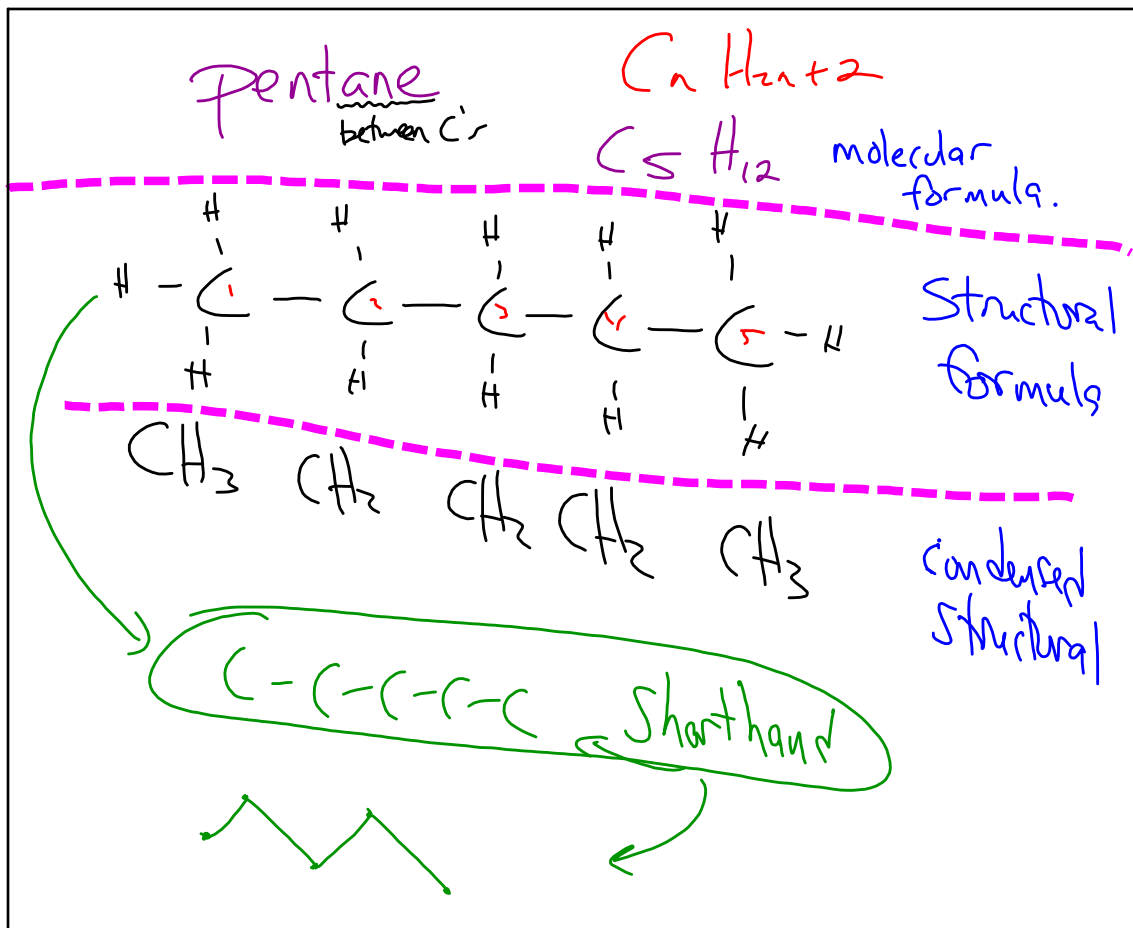 pentane
between C's
Cn H2n+2
C5 H12
molecular
formula.
H H H H H
H - C1 - C2 - C3 - C4 - C5 - H
H H H H H
Structural
formula
CH3 CH2 CH2 CH2 CH3
Condensed
Structural
C-C-C-C-C Shorthand